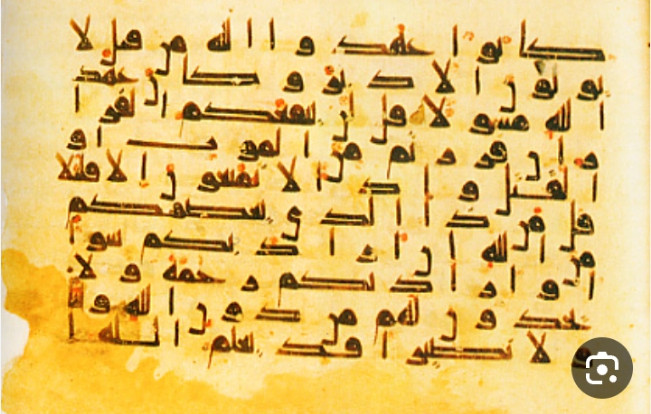 كانوا عهدوا الله من قبل لا
يولون الادبر وكان عهد
الله مسولا قل لن ينفعكم الفرا
ر ان فررتم من الموت او
القتل واذا لا تمتعون الا قليلا
قل من ذا الذى يعصمكم
من الله ان اراد بكم سوا
او اراد بكم رحمة ولا
يجدون لهم من دون الله وليا
ولا نصيرا قد يعلم الله ا